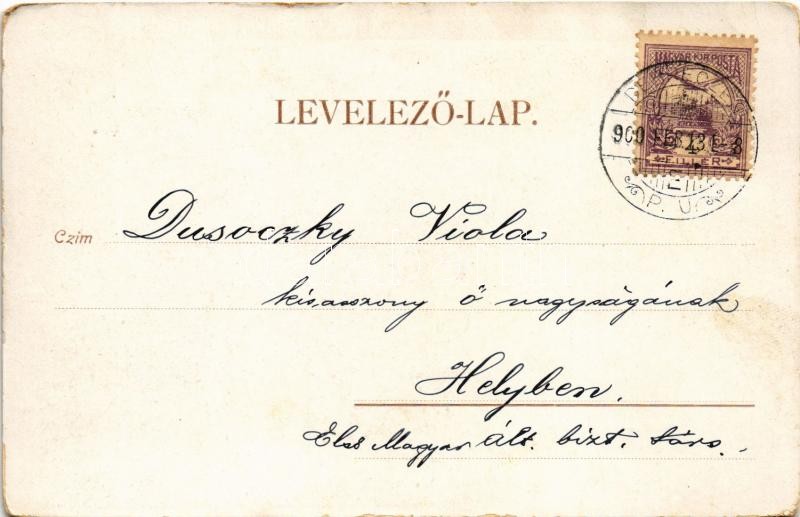 LEVELEZŐ-LAP.
MAGYAR KIR. POSTA
FILLÉR
900 FEB 13
P. U.
Czim
Dusoczky Viola
kisasszony ő nagyságának
Helyben.
Első Magyar ált. bizt. társ.